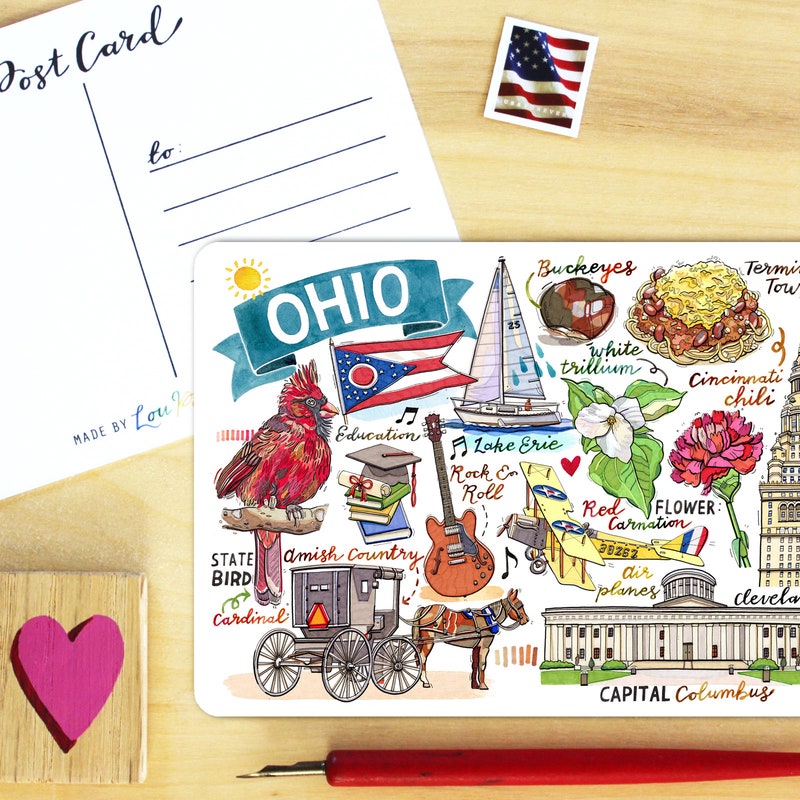 Post Card
to:
MADE BY Lou
OHIO
25
Buckeyes
White
trillium
Cincinnati
chili
Education
Lake Erie
Rock &
Roll
Red
Carnation
FLOWER:
STATE
BIRD
Cardinal
Amish Country
air
planes
Cleveland
CAPITAL Columbus